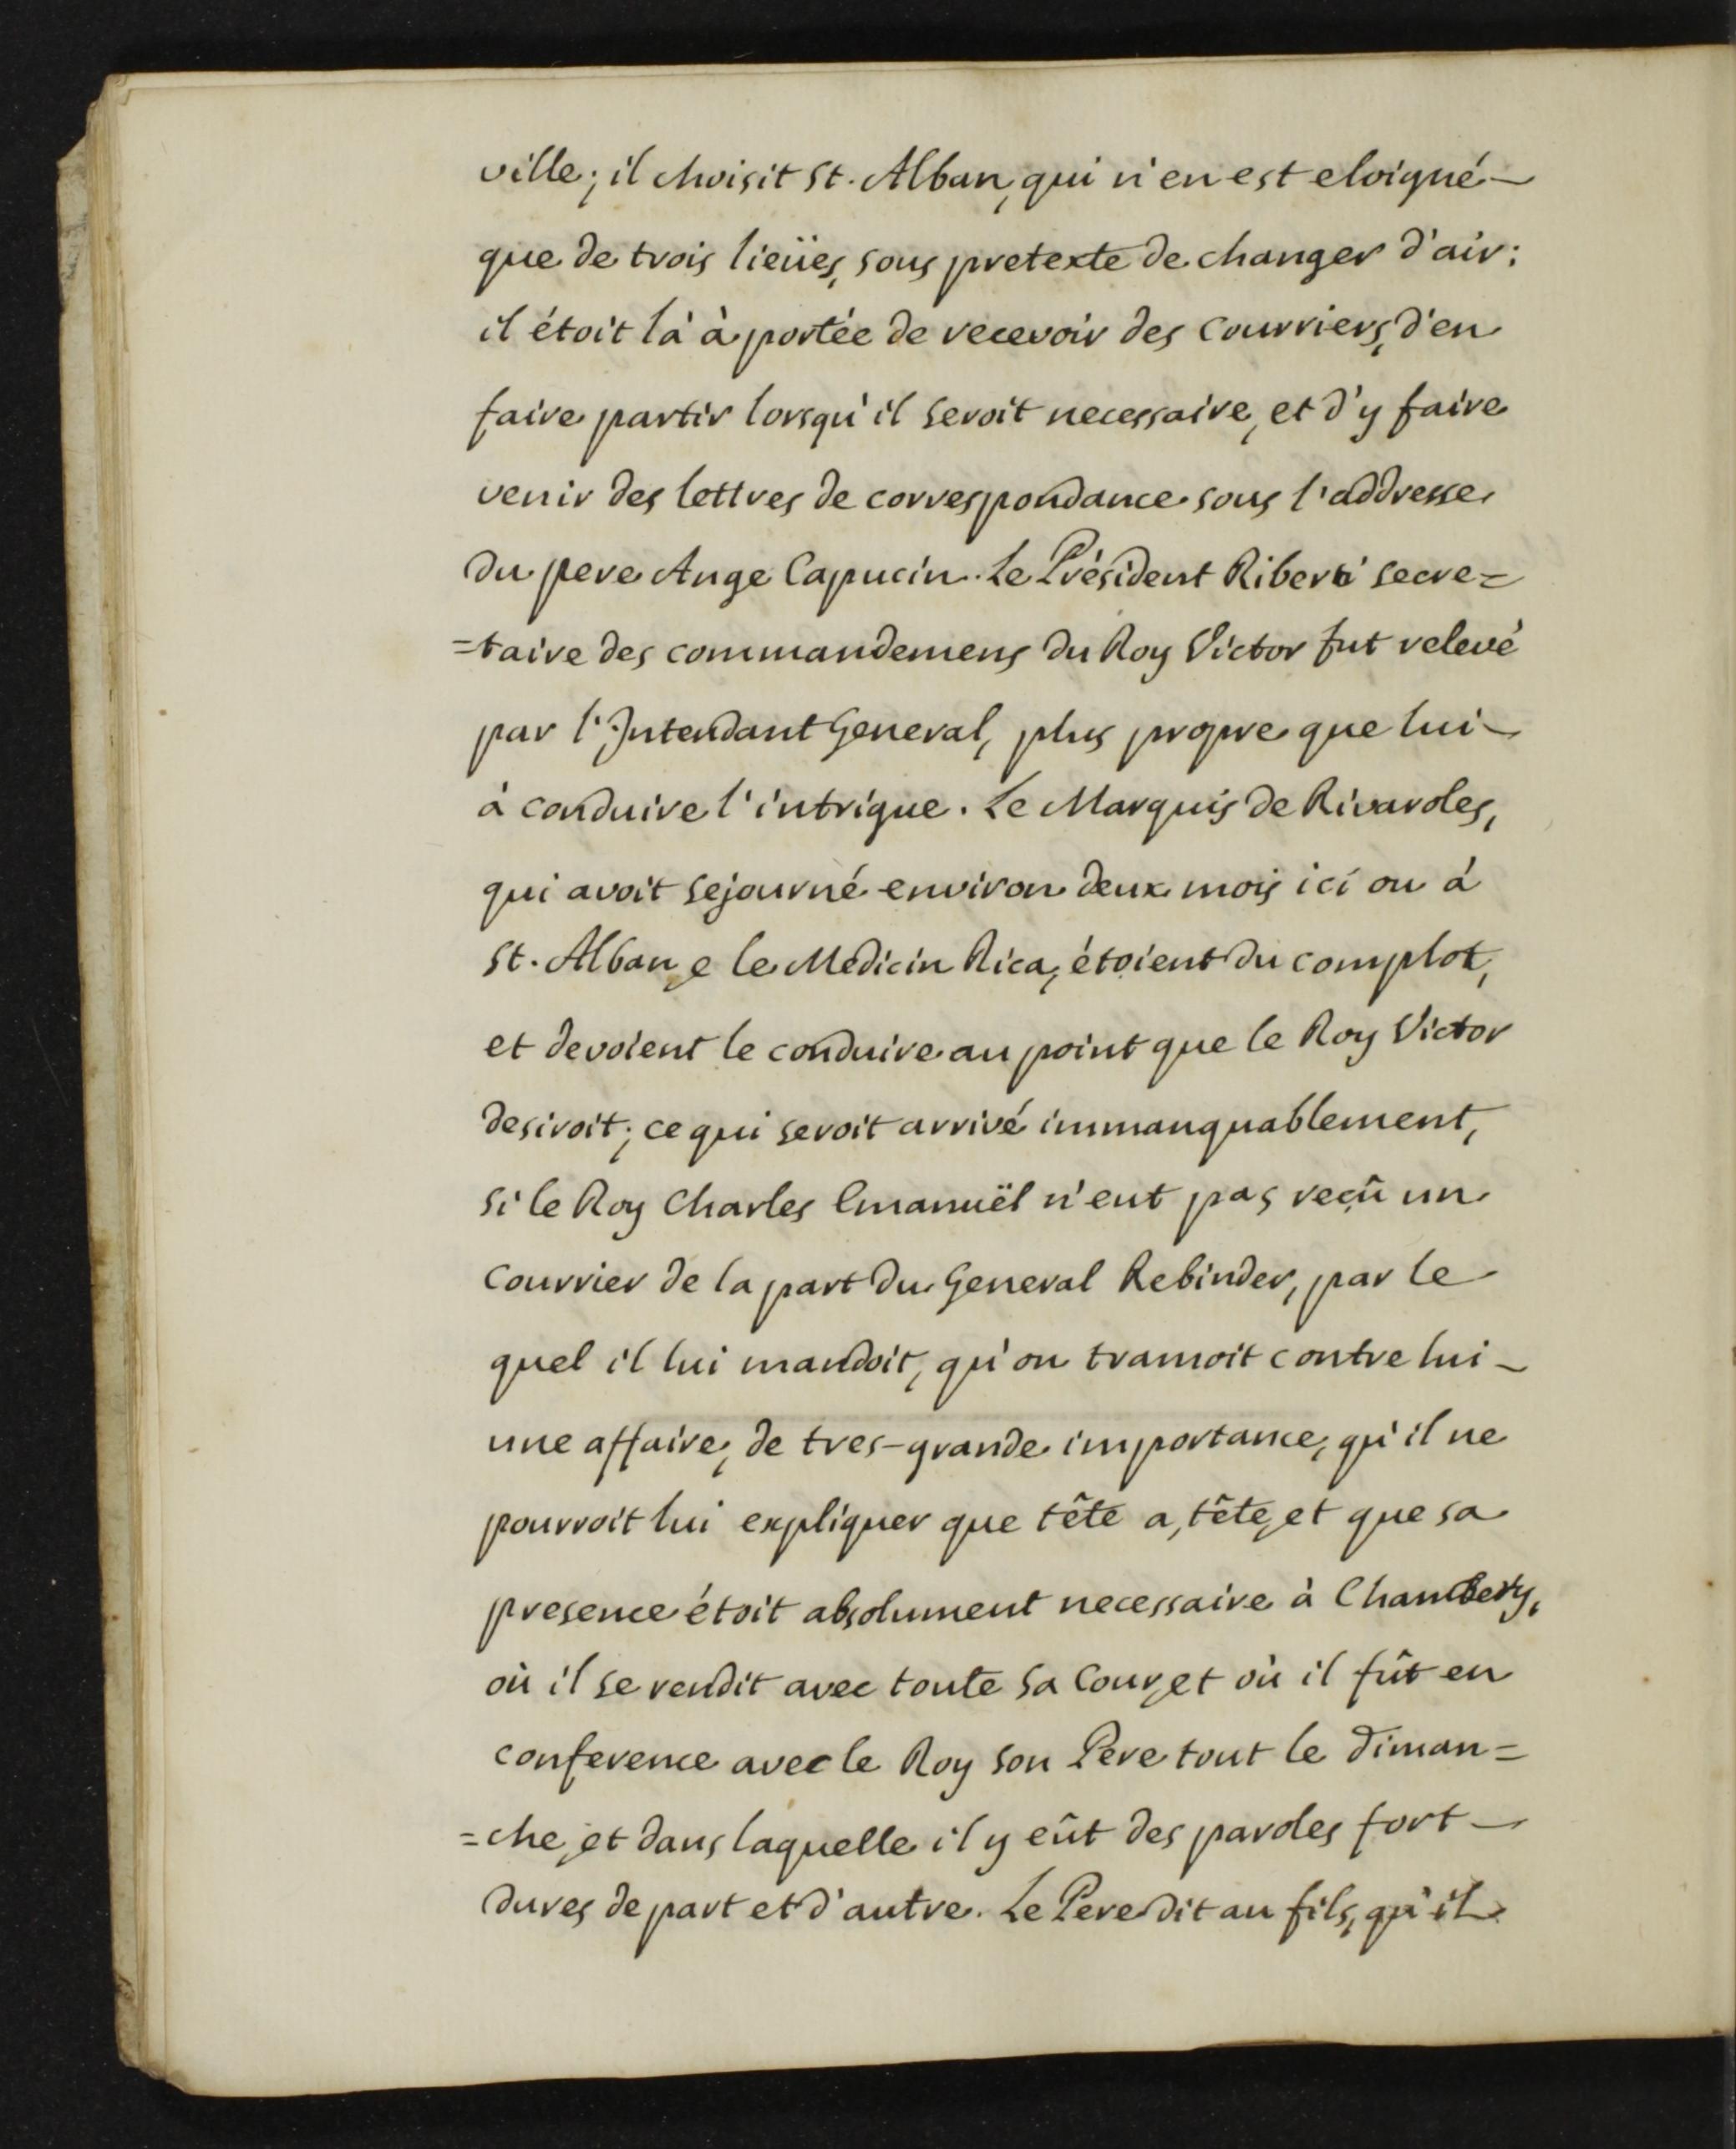 ville; il choisit St. Alban, qui n'en est eloigné
que de trois lieües, sous pretexte de changer d'air:
il étoit là à portée de recevoir des Courriers, d'en
faire partir lorsqu'il seroit necessaire, et d'y faire
venir des lettres de correspondance sous l'addresse
du pere Ange Capucin. Le Président Riberti secre=
=taire des commandemens du Roy Victor fut relevé
par l'Intendant General, plus propre que lui
à conduire l'intrigue. Le Marquis de Rivaroles,
qui avoit sejourné environ deux mois ici ou à
St. Alban, e le Medicin Rica, étoient du complot,
et devoient le conduire au point que le Roy Victor
desiroit; ce qui seroit arrivé immanquablement,
si le Roy Charles Emanuël n'eut pas reçû un
Courrier de la part du General Rebinder, par le
quel il lui mandoit, qu'on tramoit contre lui
une affaire, de tres-grande importance, qu'il ne
pourroit lui expliquer que tête a, tête, et que sa
presence étoit absolument necessaire à Chambery,
où il se rendit avec toute sa Cour, et où il fût en
conference avec le Roy son Pere tout le diman=
=che, et dans laquelle il y eût des paroles fort
dures de part et d'autre. Le Pere dit au fils, qu'il